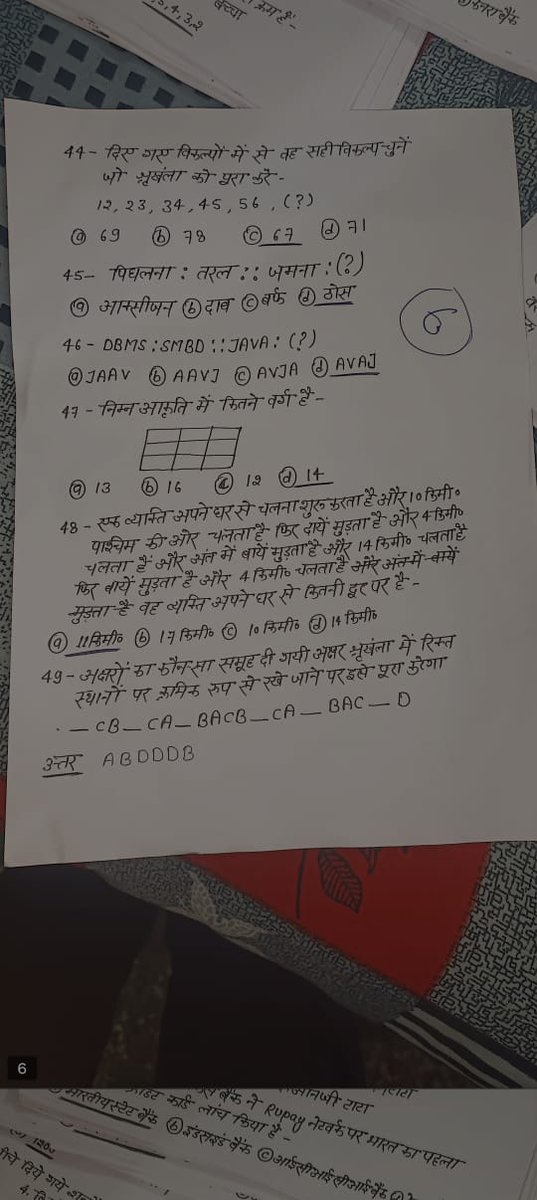 5, 4, 3, 2
बच्चा
क्रम है -
केनरा बैंक
44 - दिए गए विकल्पों में से वह सही विकल्प चुनें
जो श्रृखंला को पूरा करे -
12, 23, 34, 45, 56, (?)
ⓐ 69 ⓑ 78 ⓒ 67 ⓓ 71
45 - पिघलना : तरल :: जमना : (?)
ⓐ आक्सीजन ⓑ दाब ⓒ बर्फ ⓓ ठोस
6
46 - DBMS : SMBD :: JAVA : (?)
ⓐ JAAV ⓑ AAVJ ⓒ AVJA ⓓ AVAJ
47 - निम्न आकृति में कितने वर्ग है -
ⓐ 13 ⓑ 16 ⓒ 12 ⓓ 14
48 - एक व्यक्ति अपने घर से चलना शुरू करता है और 10 किमी०
पश्चिम की ओर चलता है फिर बायें मुड़ता है और 4 किमी०
चलता है और अंत में बायें मुड़ता है और 14 किमी० चलता है
फिर बायें मुड़ता है और 4 किमी० चलता है और अंत में बायें
मुड़ता है वह व्यक्ति अपने घर से कितनी दूर पर है -
ⓐ 11 किमी० ⓑ 17 किमी० ⓒ 10 किमी० ⓓ 14 किमी०
49 - अक्षरों का कौन सा समूह दी गयी अक्षर श्रृखंना में रिक्त
स्थानों पर क्रमिक रुप से रखे जाने पर इसे पूरा करेगा
- _ CB _ CA _ BACB _ CA _ BAC _ D
उत्तर ABDDDB
6
टाटा
कार्ड लांच किया है -
बैंक ने Rupay नेटवर्क पर भारत का पहला
भारतीय स्टेट बैंक ⓑ इंडसइंड बैंक ⓒ आईसीआईसीआई बैंक
120
नीचे दिये गये